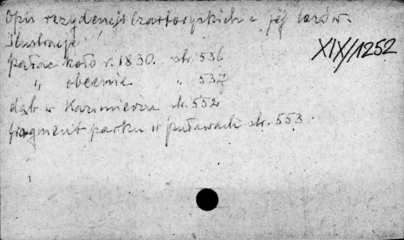 Opis rezydencji Czartoryskich i jej losów.
Ilustracje
XIX/1252
pałac koło r. 1830. str. 536
" obecnie " 537
dąb w Kazimierzu str. 552
fragment parku w Puławach str. 553